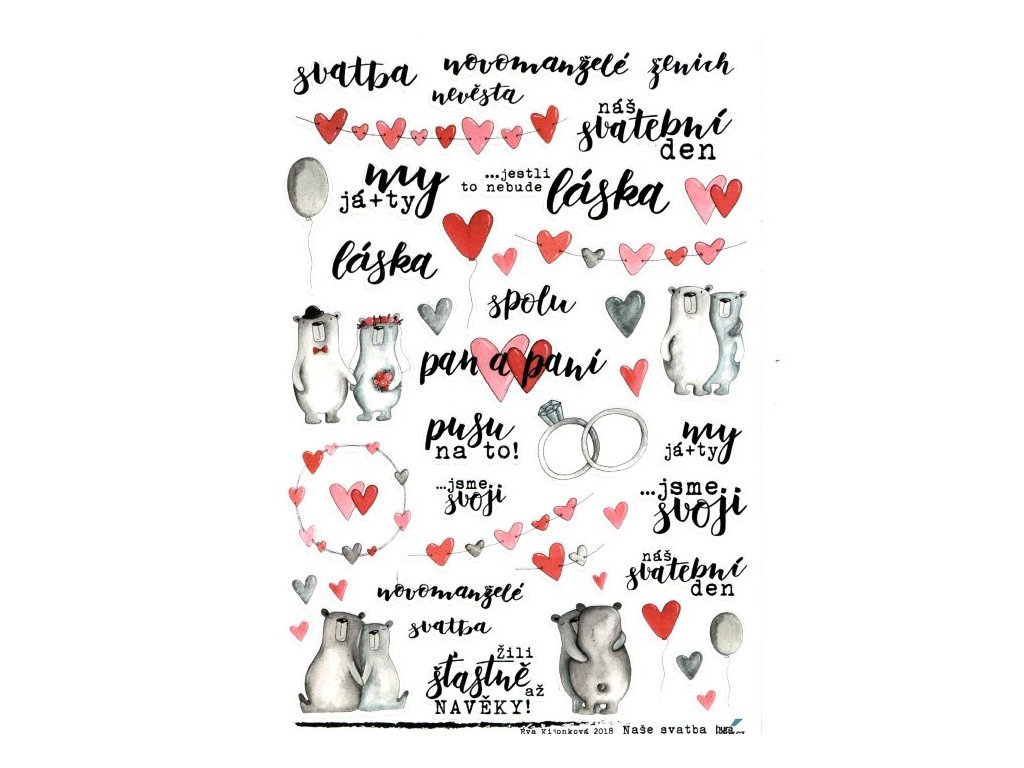 svatba
novomanželé
ženich
nevěsta
náš
svatební
den
my
já+ty
...jestli
to nebude
láska
láska
spolu
pan a paní
pusu
na to!
my
já+ty
...jsme
svoji
...jsme
svoji
náš
svatební
den
novomanželé
svatba
žili
šťastně
až
NAVĚKY!
Eva Kijonková 2018 Naše svatba